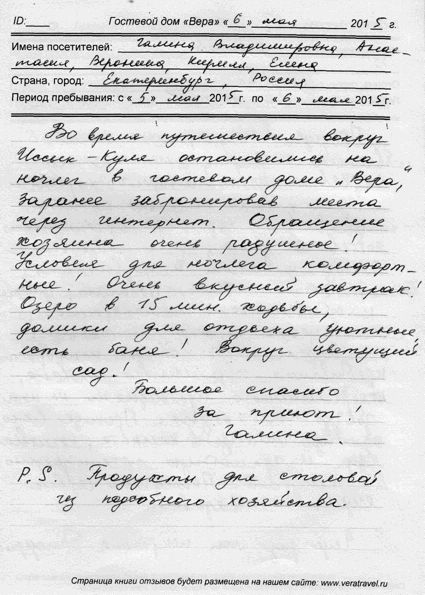 ID:____ Гостевой дом «Вера» « 6 » мая 2015 г.
Имена посетителей: Галина Владимировна, Анас-
тасия, Вероника, Кирилл, Елена
Страна, город: Екатеринбург, Россия
Период пребывания: с « 5 » мая 2015 г. по « 6 » мая 2015 г.
Во время путешествия вокруг
Иссык-Куля остановились на
ночлег в гостевом доме „Вера“,
заранее забронировав места
через интернет. Обращение
хозяина очень радушное!
Условия для ночлега комфорт-
ные! Очень вкусный завтрак!
Озеро в 15 мин. ходьбы,
домики для отдыха уютные
есть баня! Вокруг цветущий
сад!
Большое спасибо
за приют!
Галина.
P.S. Продукты для столовой
из подсобного хозяйства.
Страница книги отзывов будет размещена на нашем сайте: www.veratravel.ru